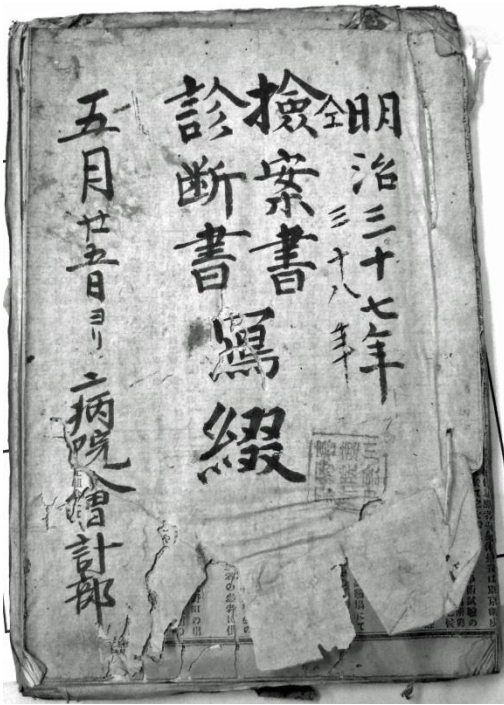 明治三十七年
仝三十八年
檢案書
診断書
寫綴
五月廿五日ヨリ
病院會計部